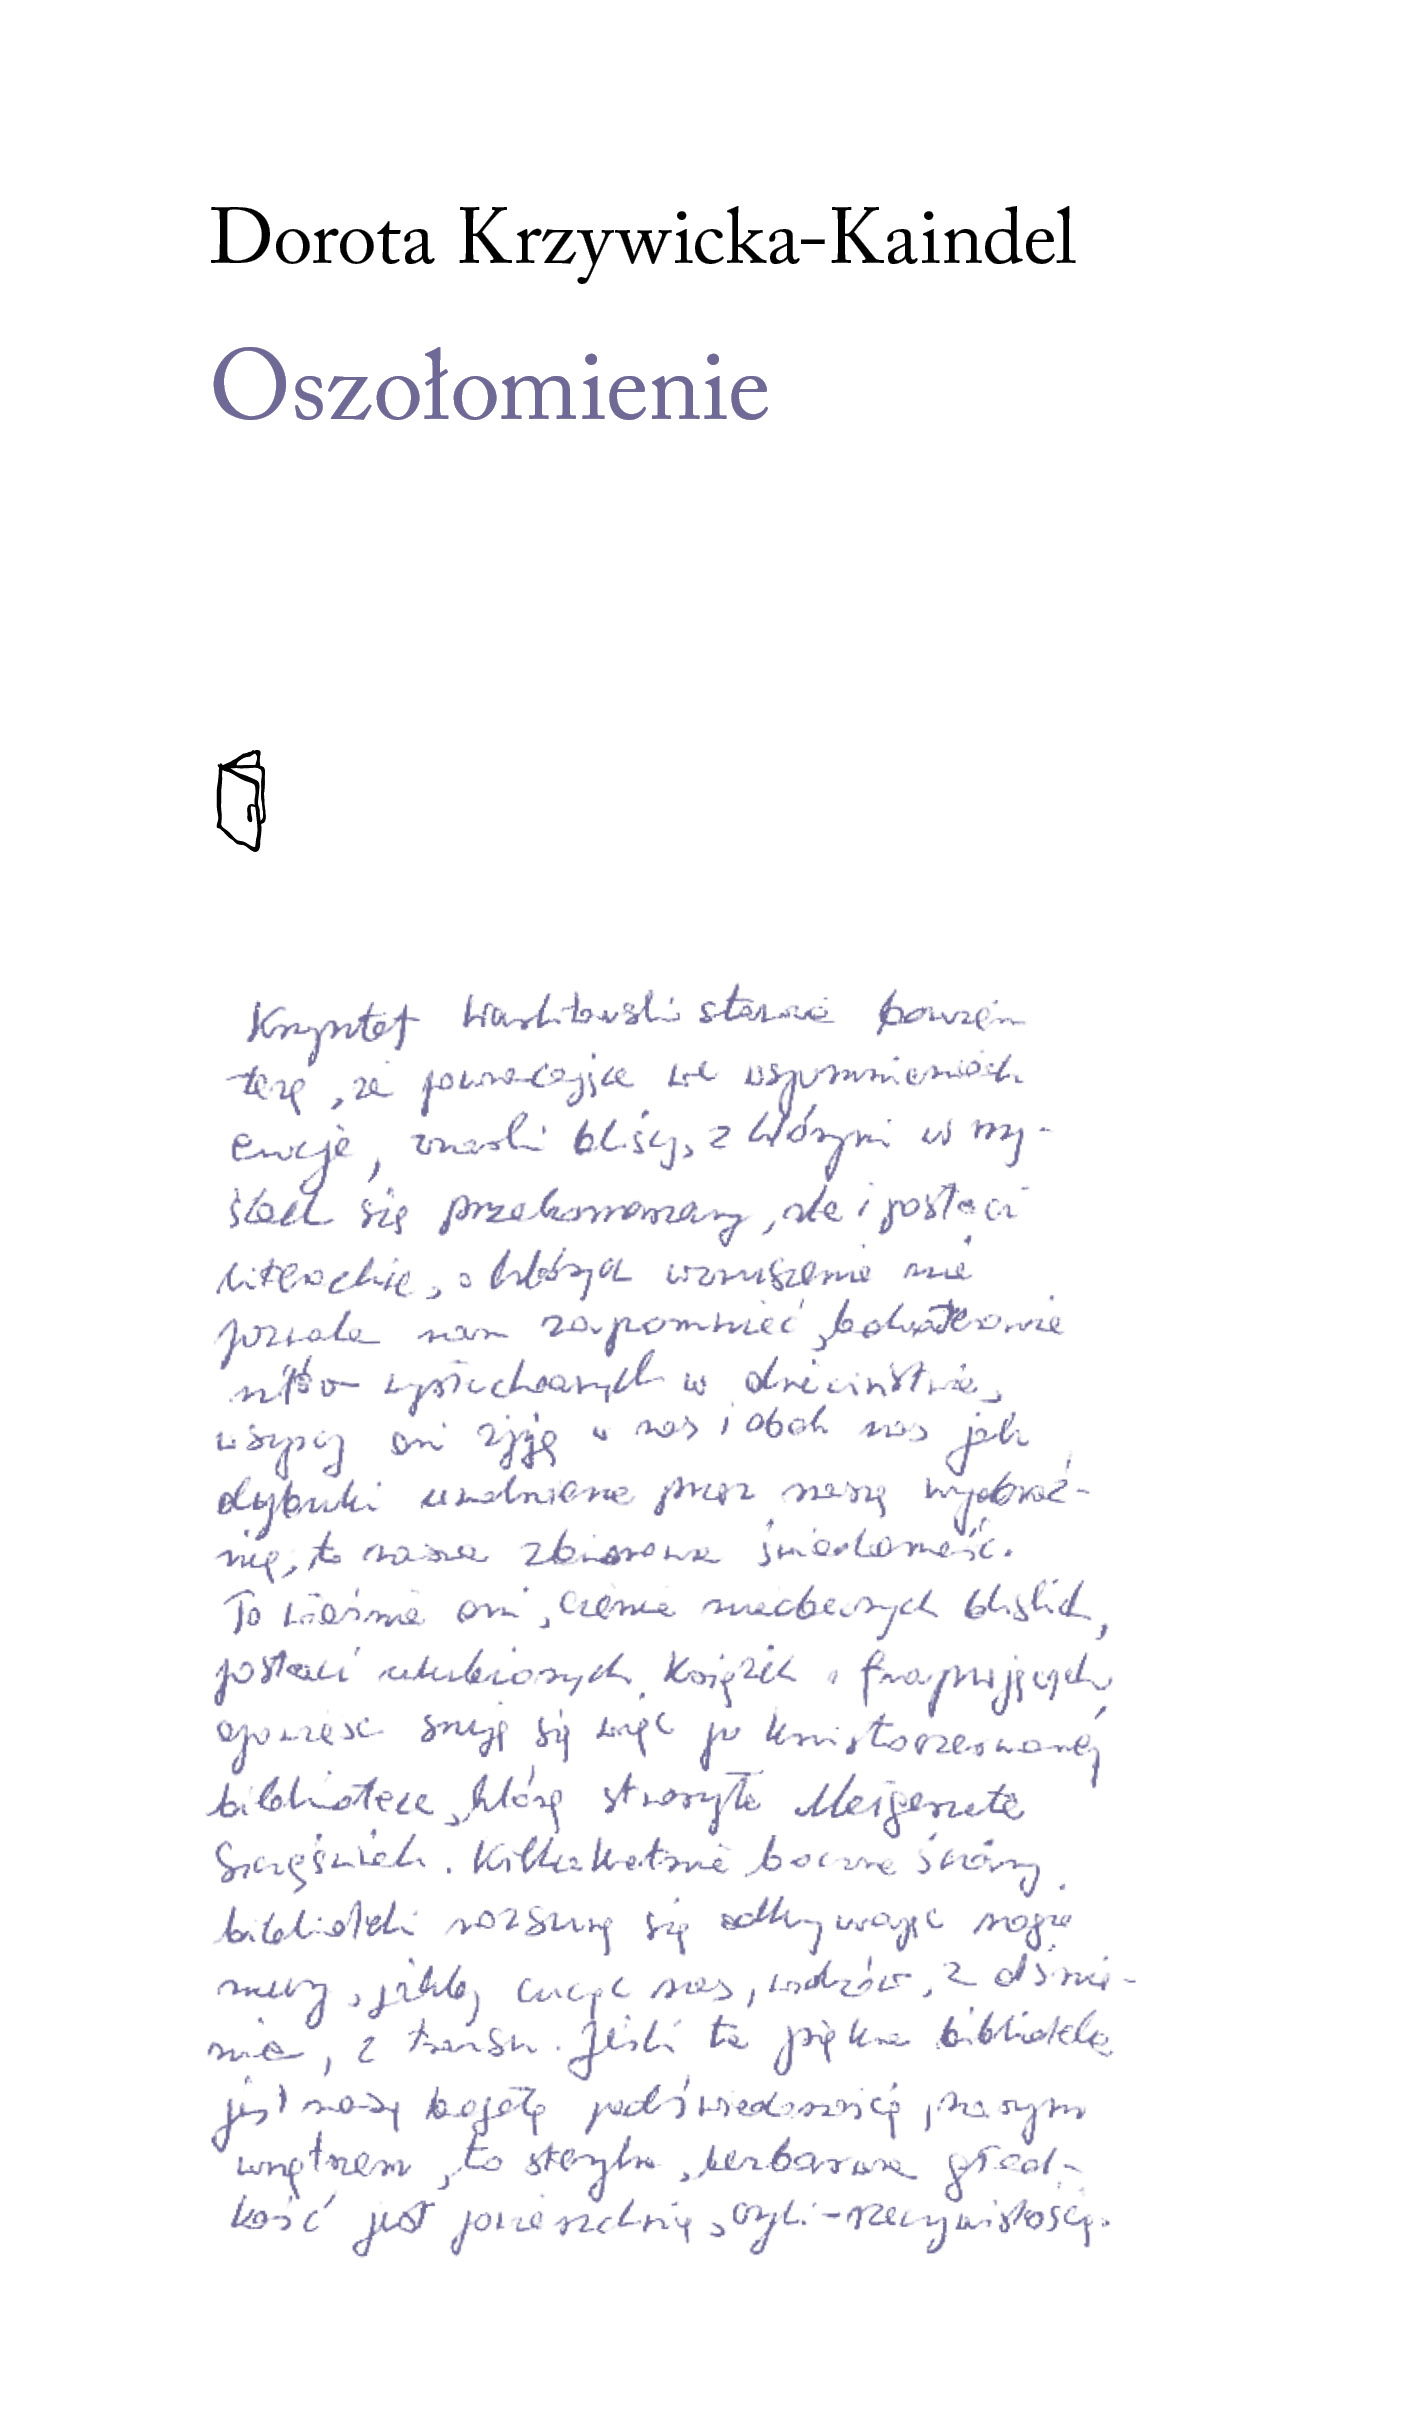 Dorota Krzywicka-Kaindel
Oszołomienie
Krzysztof Warlikowski stawia bowiem
tezę, że powracające we wspomnieniach
emocje, zmarli bliscy, z którymi w my-
ślach się przekomarzamy, ale i postaci
literackie, o których wzruszenie nie
pozwala nam zapomnieć, bohaterowie
mitów wysłuchanych w dzieciństwie,
wszyscy oni żyją w nas i obok nas jak
dybuki uwalniane przez naszą wyobraź-
nię, to nasza zbiorowa świadomość.
To właśnie oni, cienie nieobecnych bliskich,
postaci ulubionych książek i frapujących
opowieści snują się więc po
bibliotece, którą stworzyła Małgorzata
Szczęśniak. Kilkakrotnie boczne ściany
biblioteki rozsuną się odkrywając nagie
mury, jakby cucąc nas, widzów, z olśnie-
nia, z transu. Jeśli ta piękna biblioteka
jest naszą bogatą podświadomością, naszym
wnętrzem, to sterylna, bezbarwna gład-
kość jest powierzchnią, czyli – rzeczywistością.